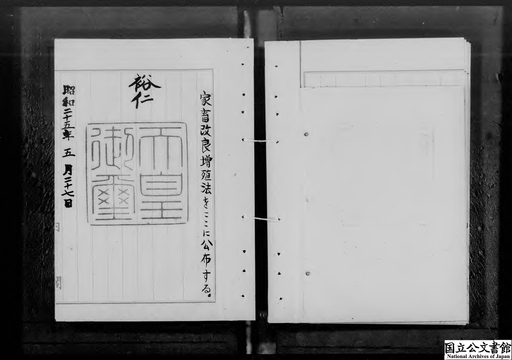 家畜改良増殖法をここに公布する。
裕仁
天皇
御璽
昭和二十五年五月二十七日
内閣
国立公文書館
National Archives of Japan